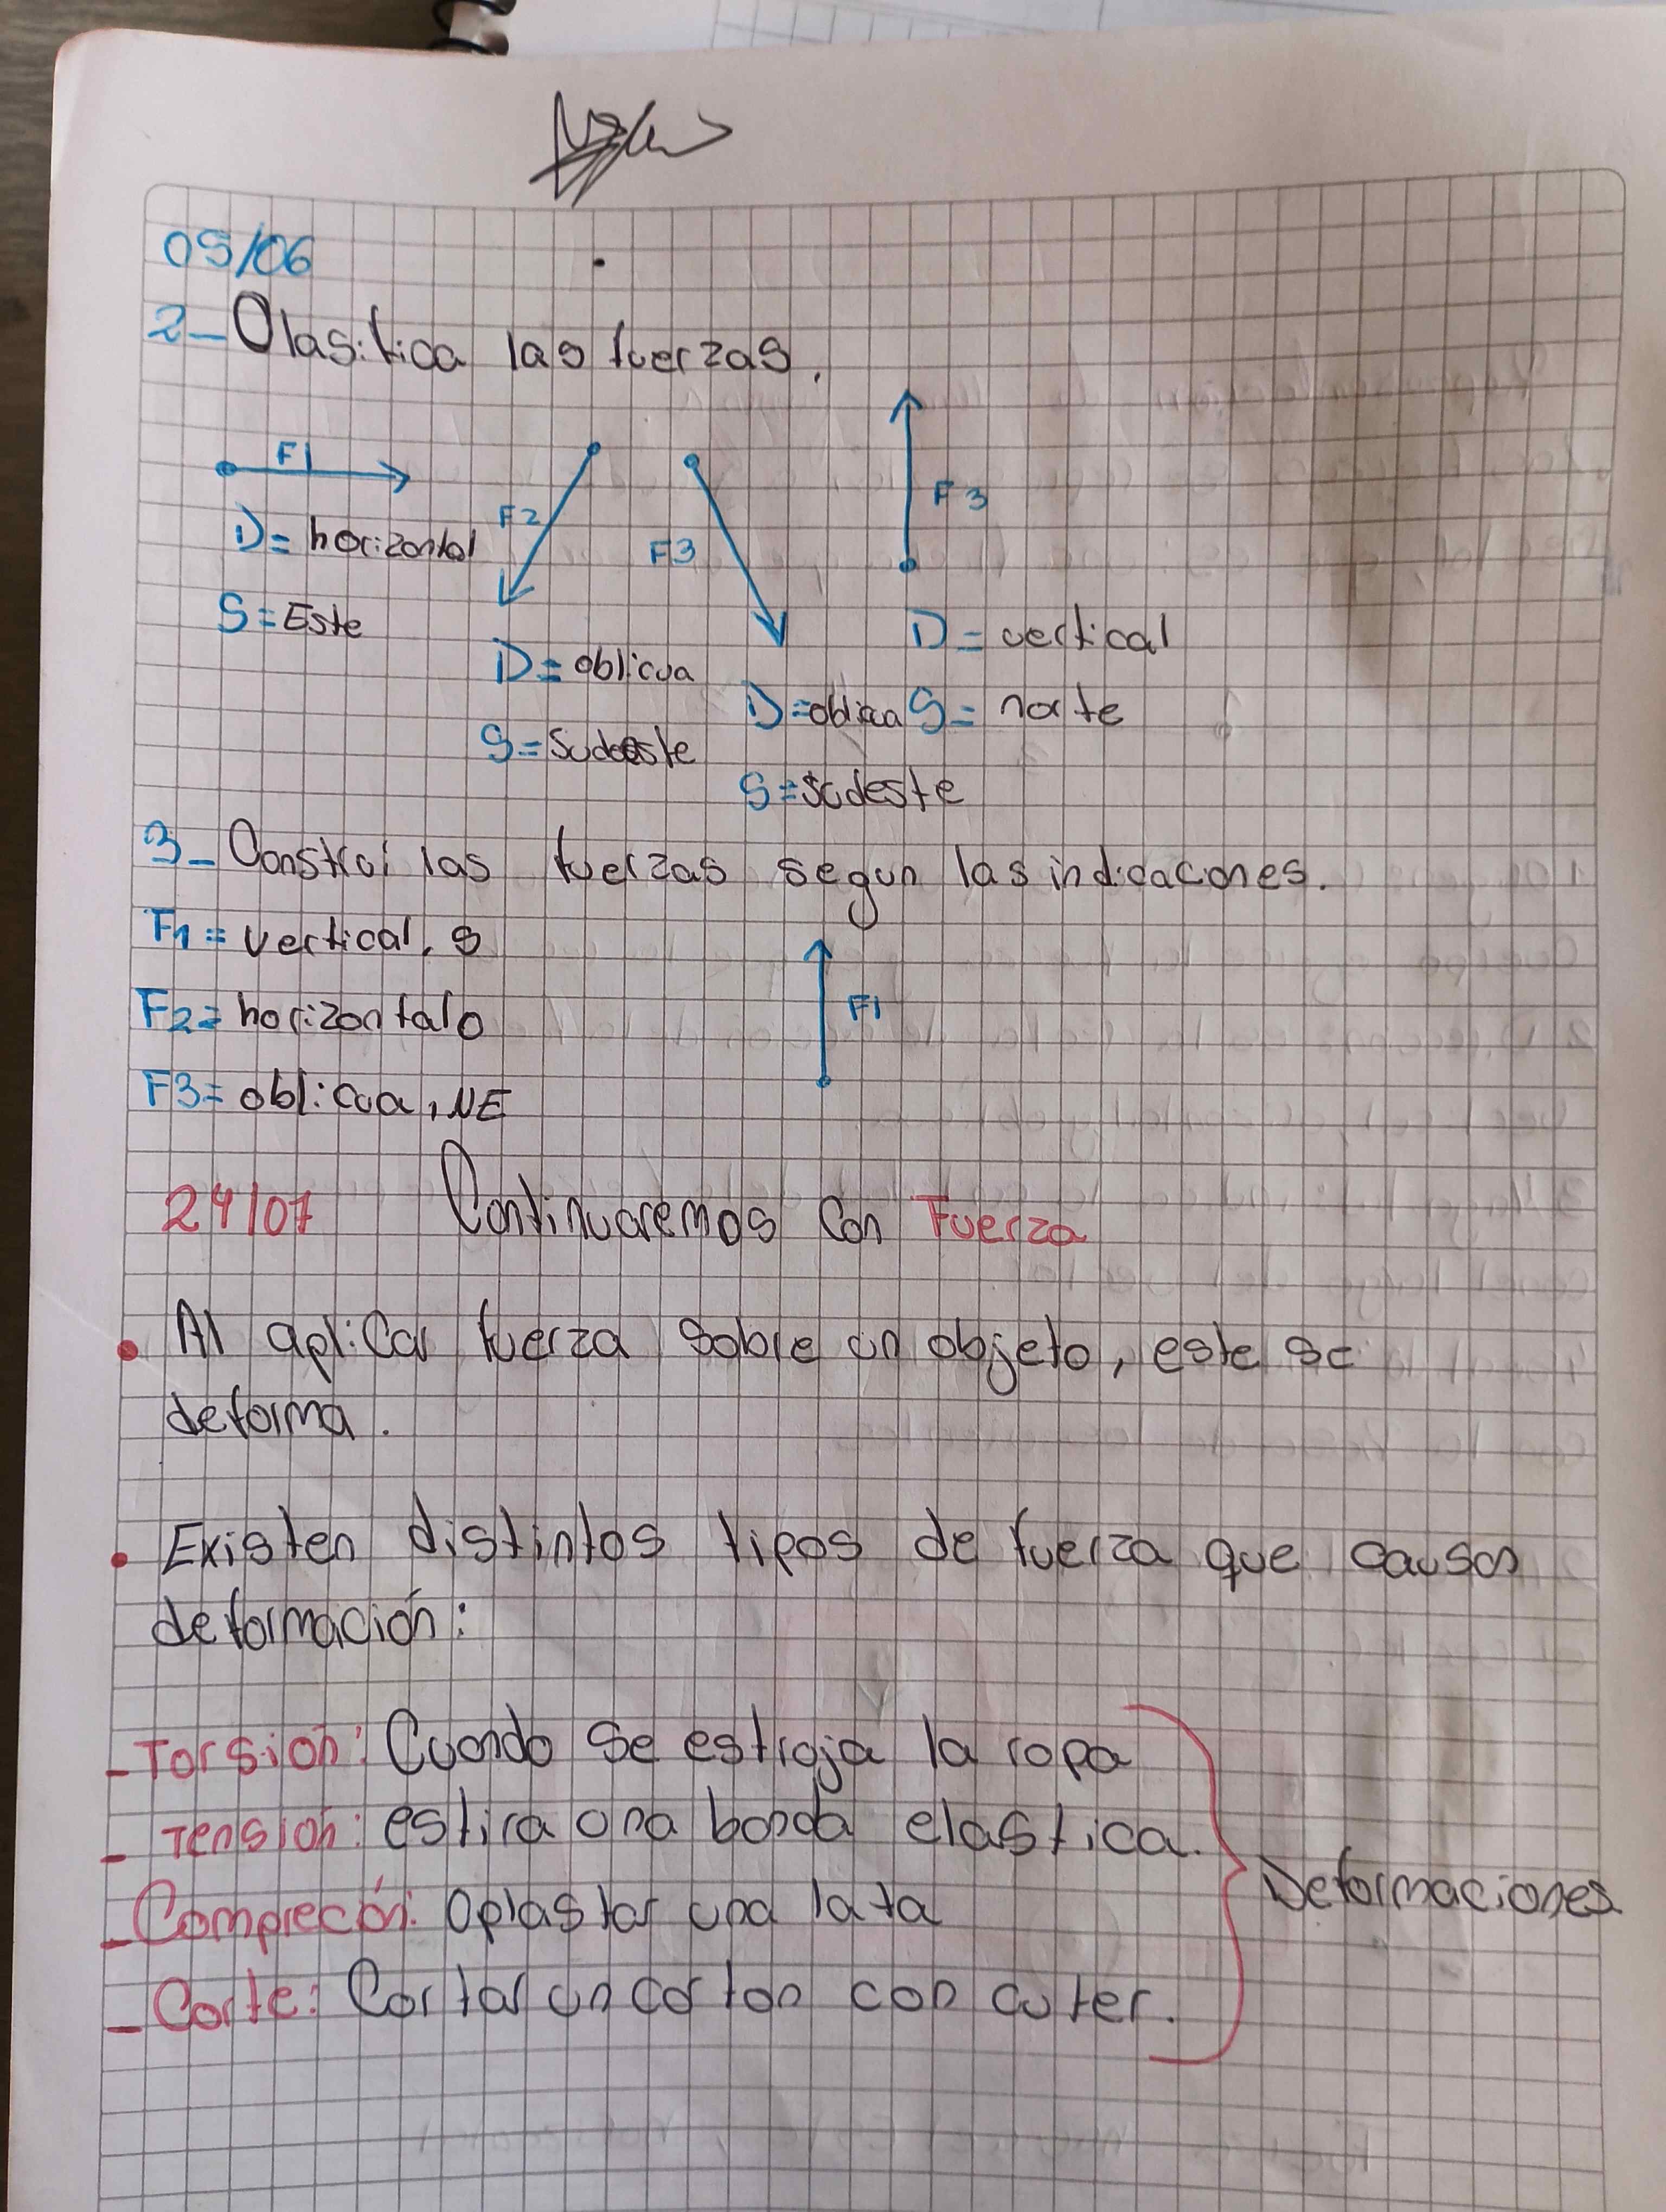 05/06
2- Clasifica las fuerzas.
F1
F2
F3
F3
D= horizontal
S= Este
D= oblicua
S= Sudoeste
D= oblicua
S= Sudeste
D= vertical
S= norte
3- Construi las fuerzas segun las indicaciones.
F1= vertical, s
F2= horizontal o
F3= oblicua, NE
F1
24/07 Continuaremos con Fuerza
• Al aplicar fuerza sobre un objeto, este se
deforma.
• Existen distintos tipos de fuerza que causan
deformación:
- Torsión: Cuando se estroja la ropa
- Tensión: estira una banda elastica.
- Compreción: Oplastar una lata
- Corte: Cortar un carton con cuter.
Deformaciones